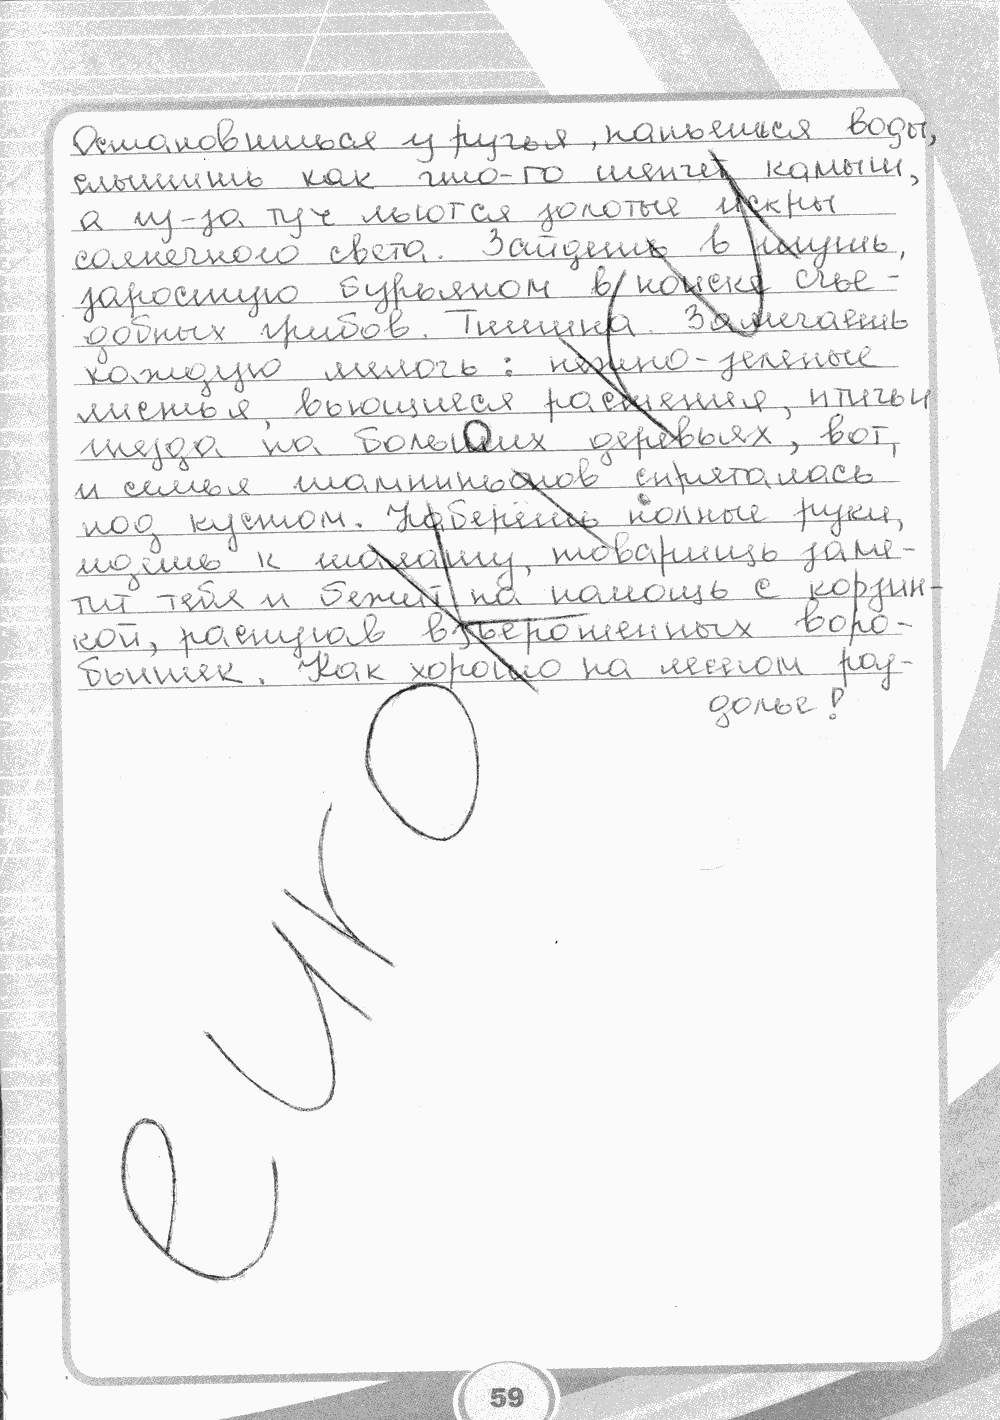 Остановишься у ручья, напьешься воды,
слышишь как что-то шепчет камыш,
а из-за туч льются золотые искры
солнечного света. Зайдешь в глушь,
заросшую бурьяном в поиске съе-
добных грибов. Тишина. Замечаешь
каждую мелочь: нежно-зеленые
листья, вьющиеся растения, птичьи
гнезда на больших деревьях, вот,
и семья шампиньонов спряталась
под кустом. Наберёшь полные руки,
идешь к шалашу, товарищь заме-
тит тебя и бежит на помощь с корзин-
кой, распугав взъерошенных воро-
бышек. Как хорошо на лесном раз-
долье!
59